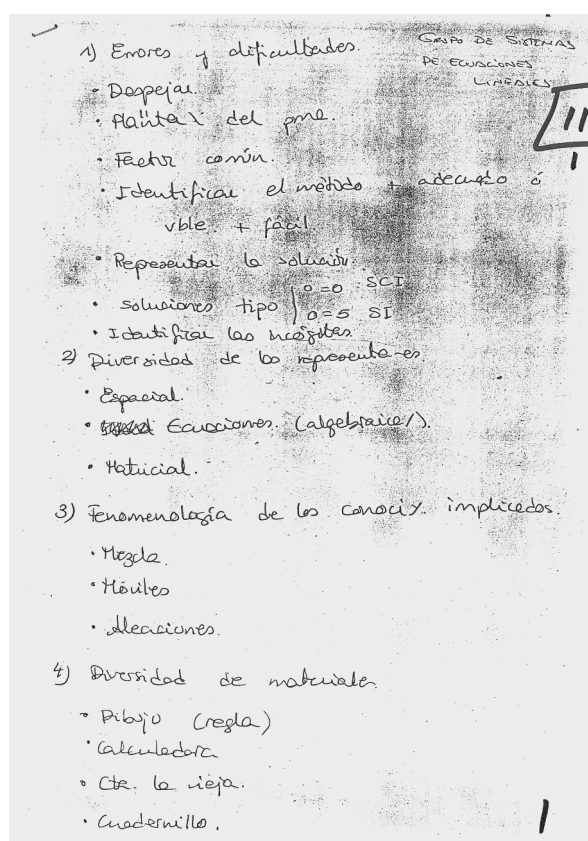 GRUPO DE SISTEMAS
DE ECUACIONES
LINEALES
1) Errores y dificultades.
• Despejar.
• Plantear del pme.
• Factor común.
• Identificar el método + adecuado ó
vble. + fácil.
• Representar la solución.
• soluciones tipo 0=0 SCI
0=5 SI
• Identificar las incógnitas
2) Diversidad de los representa-es.
• Espacial.
• Ecuaciones. (algebraica/).
• Matricial.
3) Fenomenología de los conoci/. implicados.
• Mezcla.
• Móviles
• Aleaciones.
4) Diversidad de materiales
• Dibujo (regla)
• Calculadora
• Cte. la vieja.
• Cuadernillo.
1